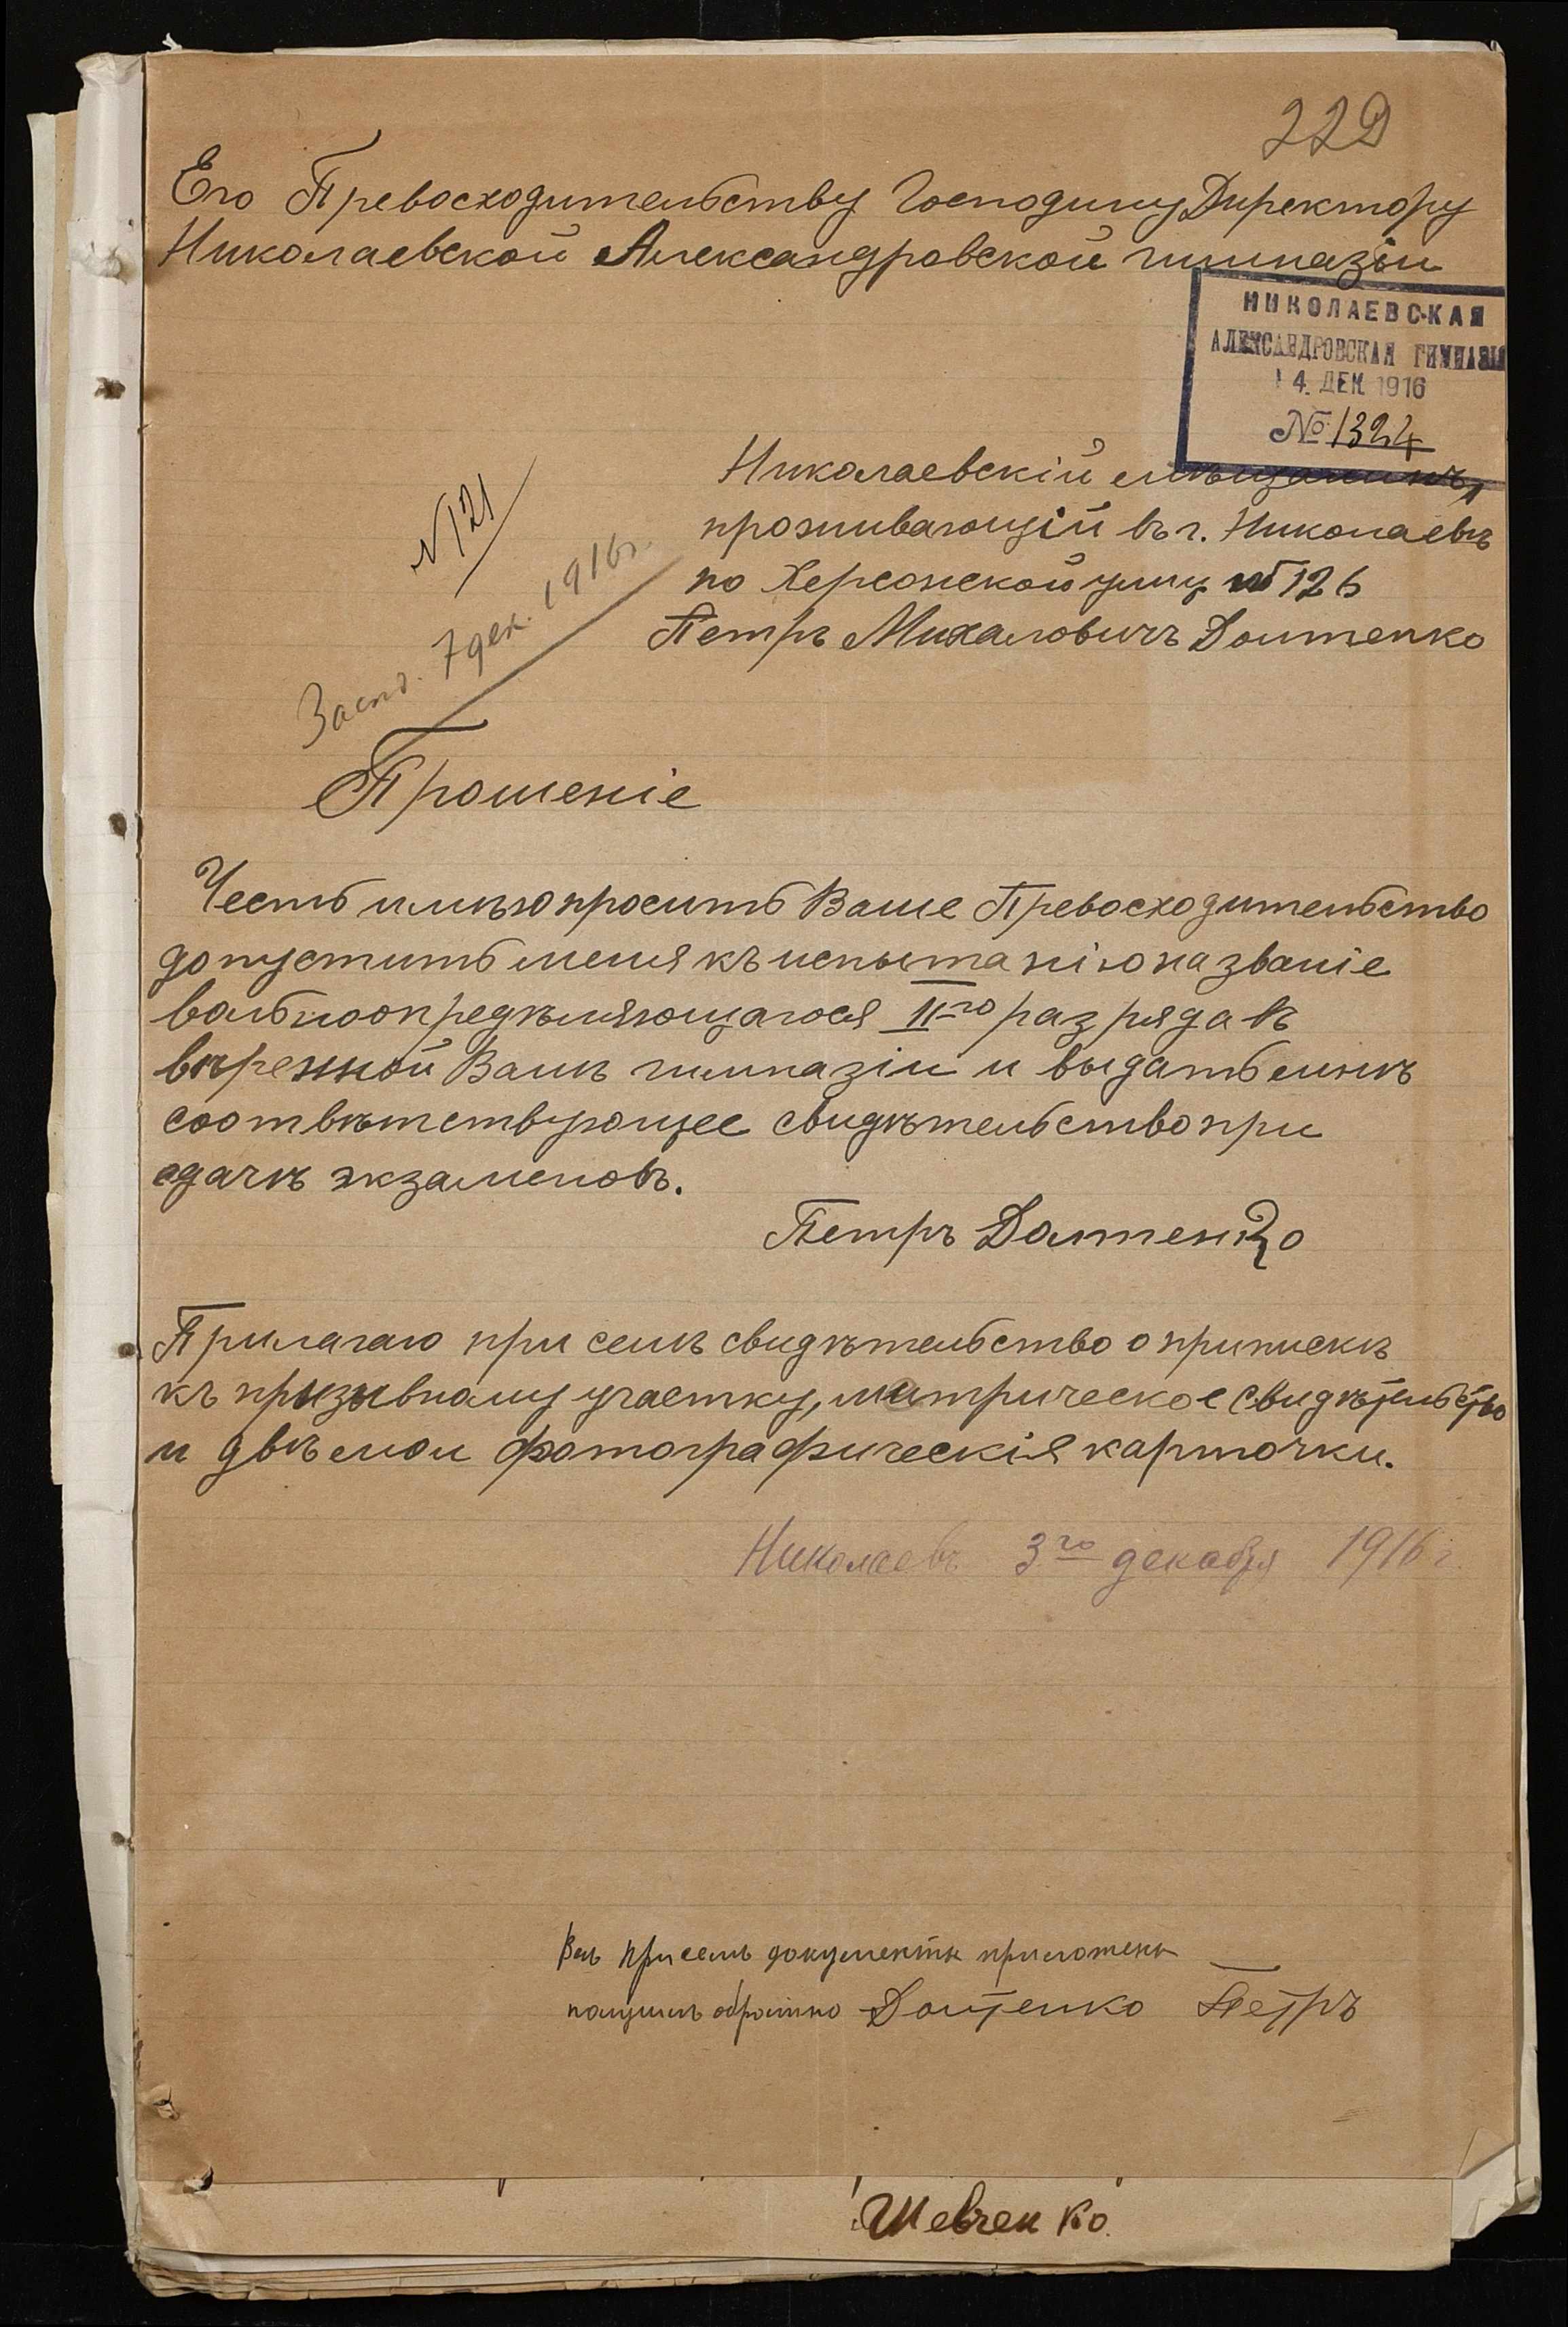 229
Его Превосходительству Господину Директору
Николаевской Александровской гимназіи
НИКОЛАЕВСКАЯ
АЛЕКСАНДРОВСКАЯ ГИМНАЗІЯ
4. ДЕК. 1916
№ 1324
Николаевскій мѣщанинъ,
проживающій въ г. Николаевѣ
по Херсонской улицѣ № 126
Петръ Михаловичъ Долтенко
№ 121
7 дек. 1916 г.
Прошеніе
Честь имѣю просить Ваше Превосходительство
допустить меня къ испытанію на званіе
вольноопредѣляющагося II-го разряда въ
ввѣренной Вамъ гимназіи и выдать мнѣ
соотвѣтствующее свидѣтельство при
сдачѣ экзаменовъ.
Петръ Долтенко
Прилагаю при семъ свидѣтельство о припискѣ
къ призывному участку, метрическое свидѣтельство
и двѣ мои фотографическія карточки.
Николаевъ 3го декабря 1916 г.
Всѣ при семъ документы приложены
получилъ обратно Долтенко Петръ
Шевченко